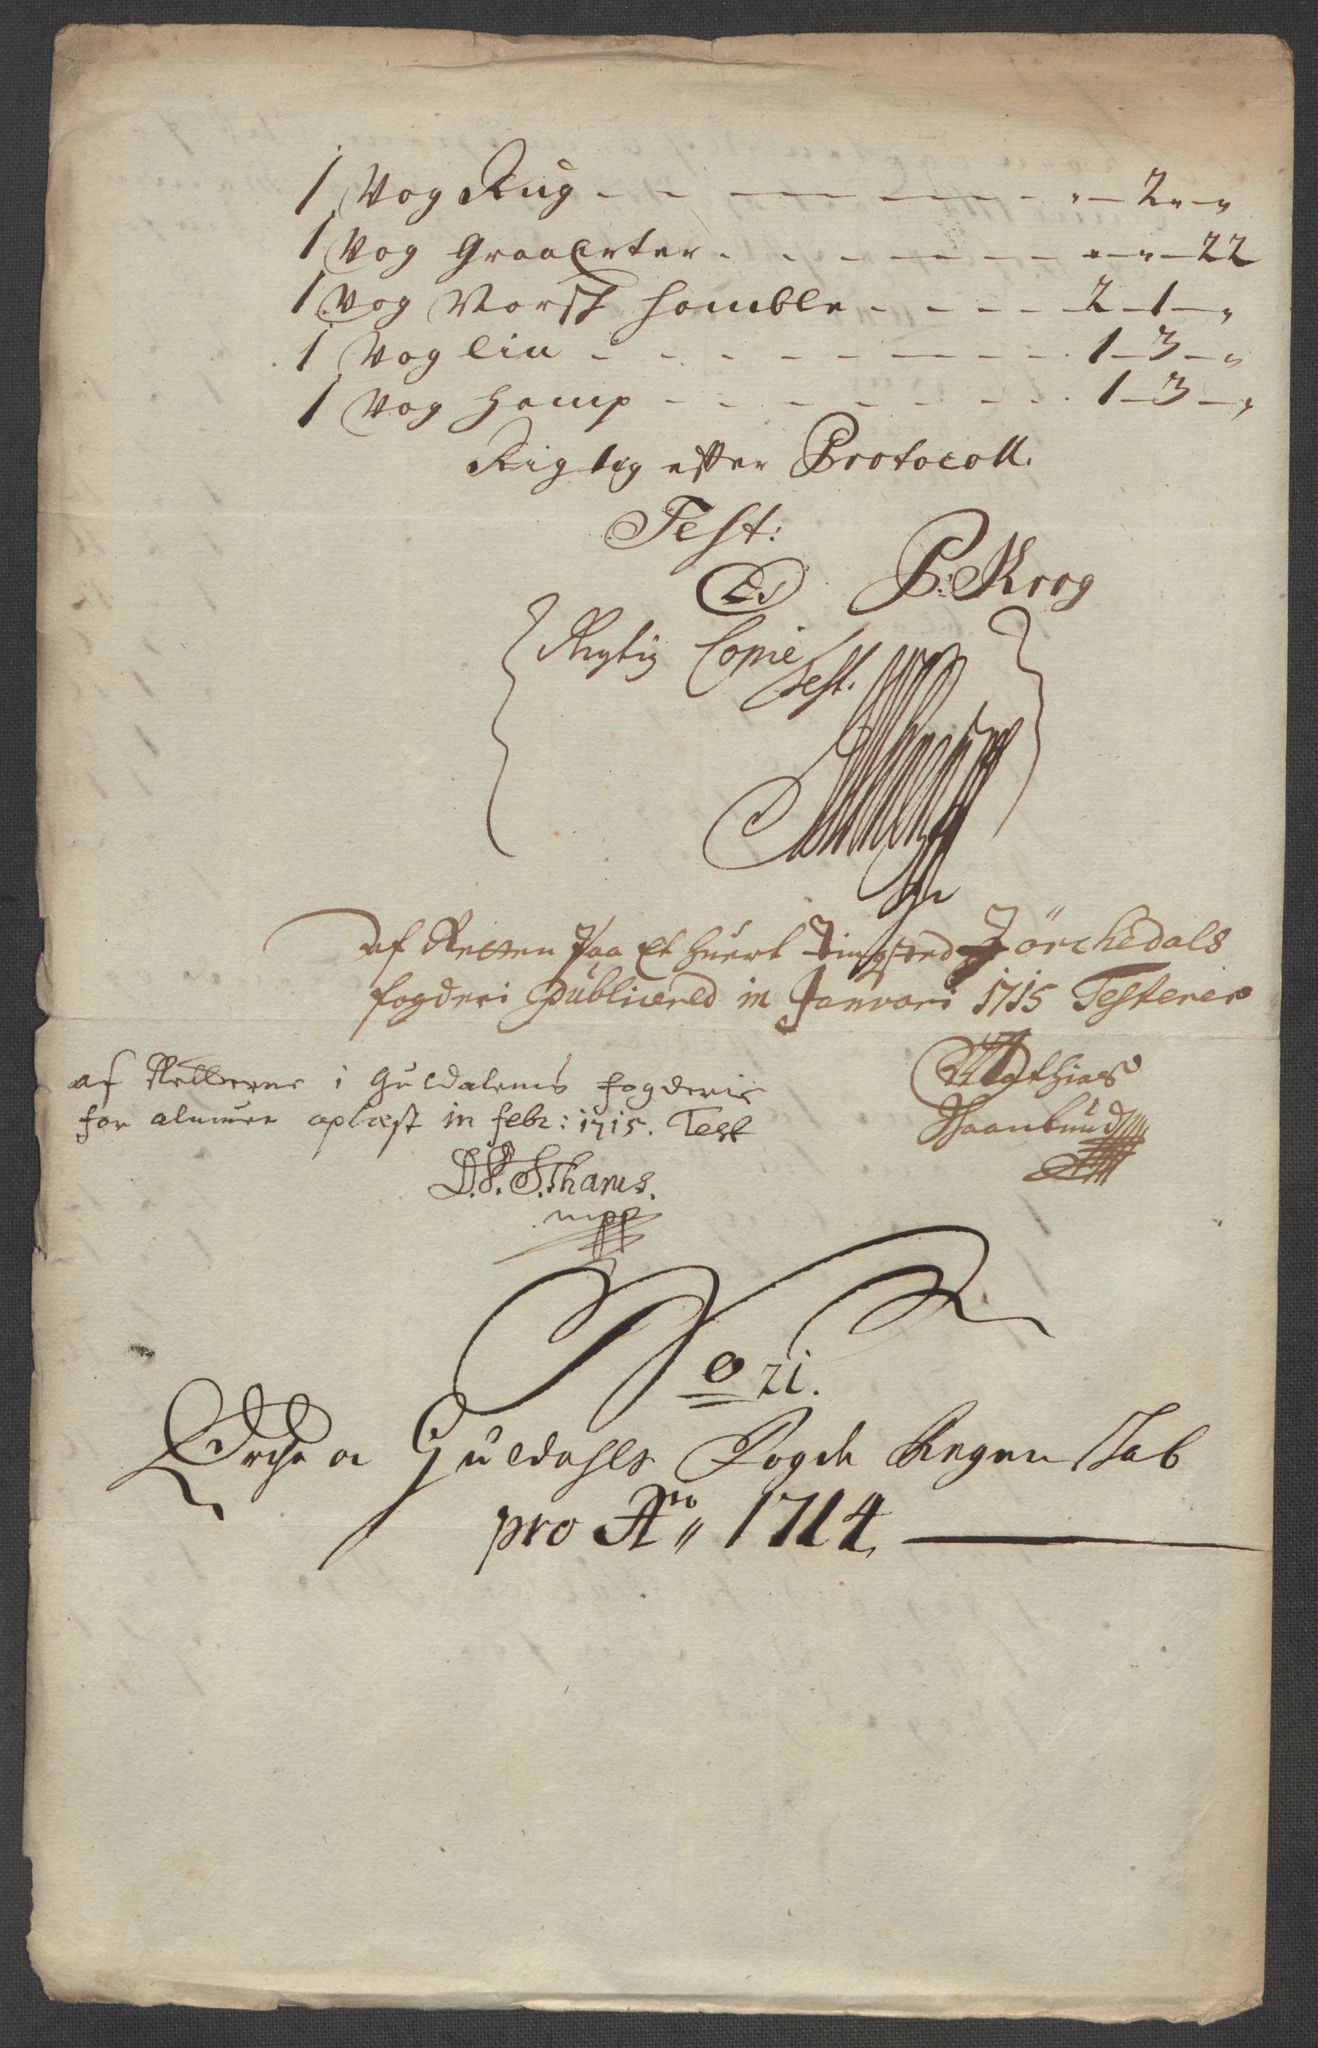 1 Vog Rug - - - - - - - „ - 2 „ - „
1 Vog Graaerter - - - - - - „ - „ - 22
1 Vog Norsk homble - - - - 2 - 1 - „
1 Vog lin - - - - - - - - 1 - 3 - „
1 Vog hamp - - - - - - - 1 - 3 - „
Rigtig efter Protocoll.
Test:
P: Krog
Rigtig Copie
Test.
af Retten paa Et huert Tingsted J Örchedals
fogderi publicered in Januari 1715 Testerer
Mathias
af Retterne i Guldalens fogderie
for almuen oplæst in febr: 1715. Test
D. P. S. Thams.
mpp
No 21.
Orche og Guldahls Fogde Regenskab
pro Ao „ 1714